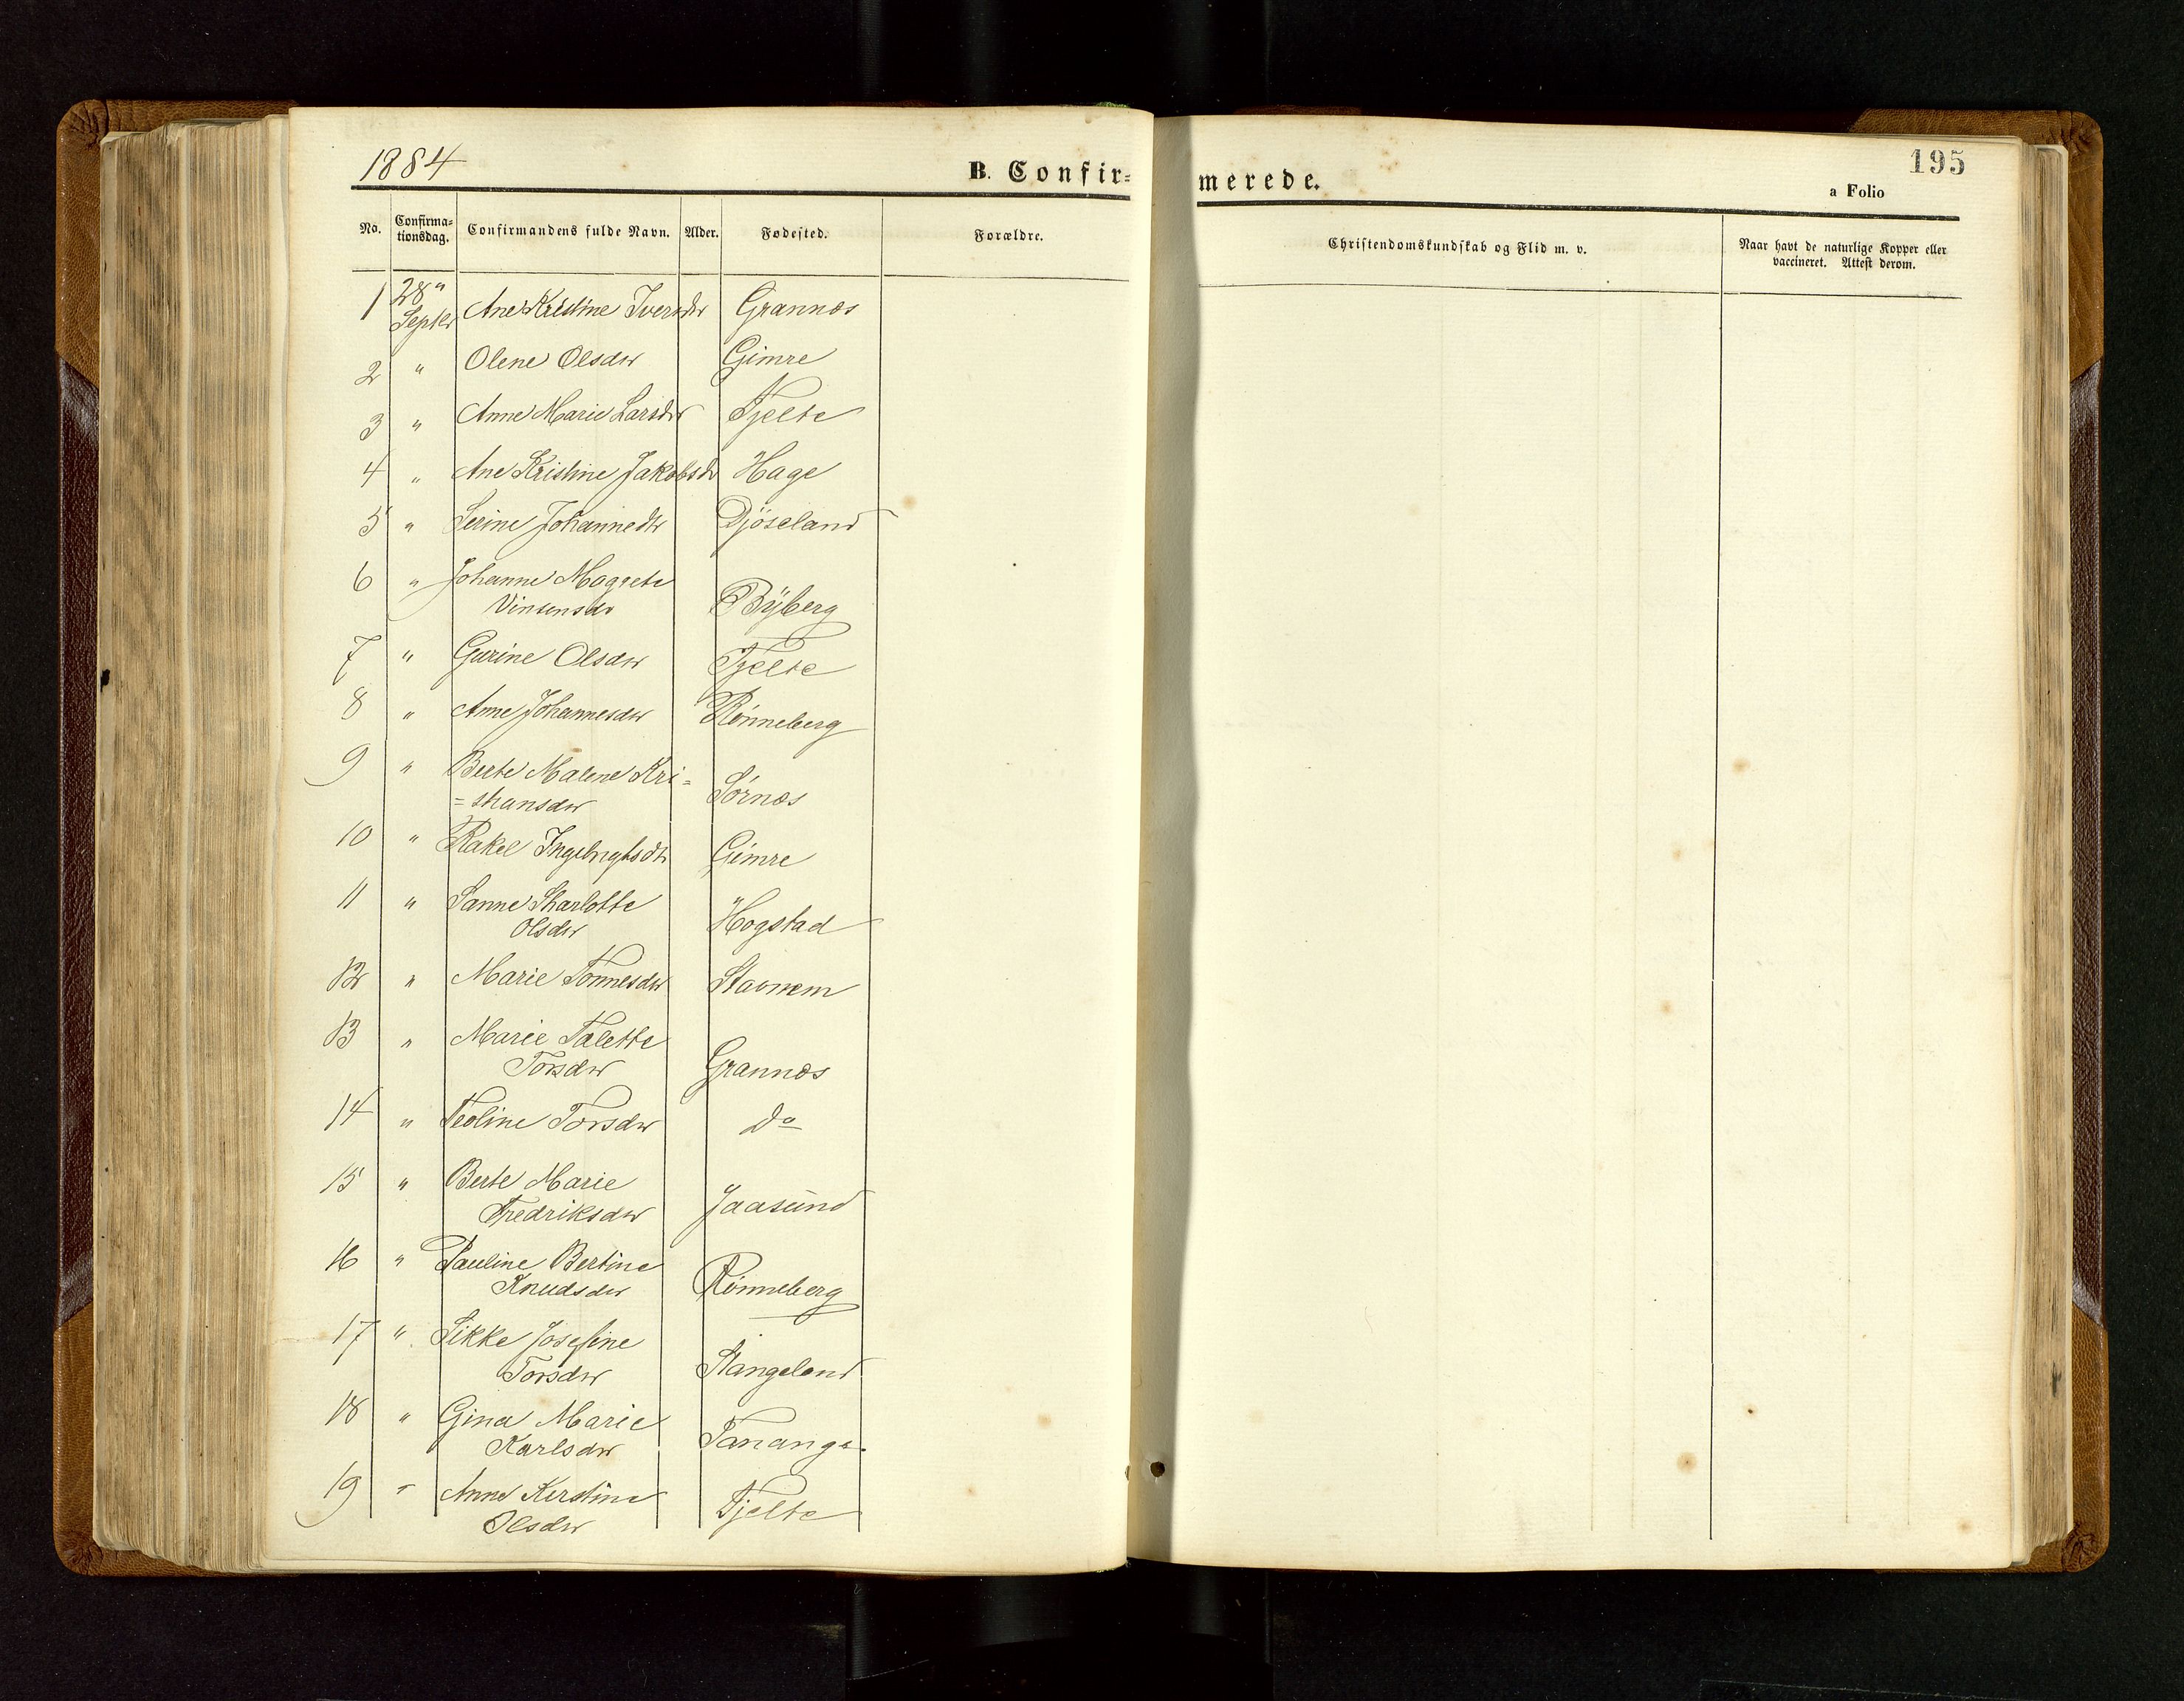 1884
B. Confirmerede.
195
a Folio
No. Confirmationsdag. Confirmandens fulde Navn. Alder. Fødested. Forældre. Christendomskundskab og Flid m. v. Naar havt de naturlige Kopper eller vaccineret. Attest derom.
1 28" Septbr Ane Kristine Iversdtr Grannæs
2 " Olene Olsdtr Gimre
3 " Anne Marie Larsdtr Tjelte
4 " Ane Kristine Jakobsdr Hage
5 " Serine Johannedtr Djöseland
6 " Johanne Maggete
Vinsensdr Byberg
7 " Gurine Olsdtr Tjelte
8 " Anne Johannesdtr Rönneberg
9 " Berte Malene Kri=
=stiansdtr Sörnæs
10 " Rakel Ingebrigtsdtr Gimre
11 " Sanne Sharlotte
Olsdtr Hogstad
12 " Marie Tönnesdtr Stavnem
13 " Marie Talette
Torsdtr Grannæs
14 " Teoline Torsdtr do
15 " Berte Marie
Fredriksdtr Jaasund
16 " Pauline Bertine
Knudsdtr Rönneberg
17 " Sikke Josefine
Torsdtr Stangeland
18 " Gina Marie
Karlsdtr Tanange.
19 " Anne Kerstine
Olsdtr Tjelte